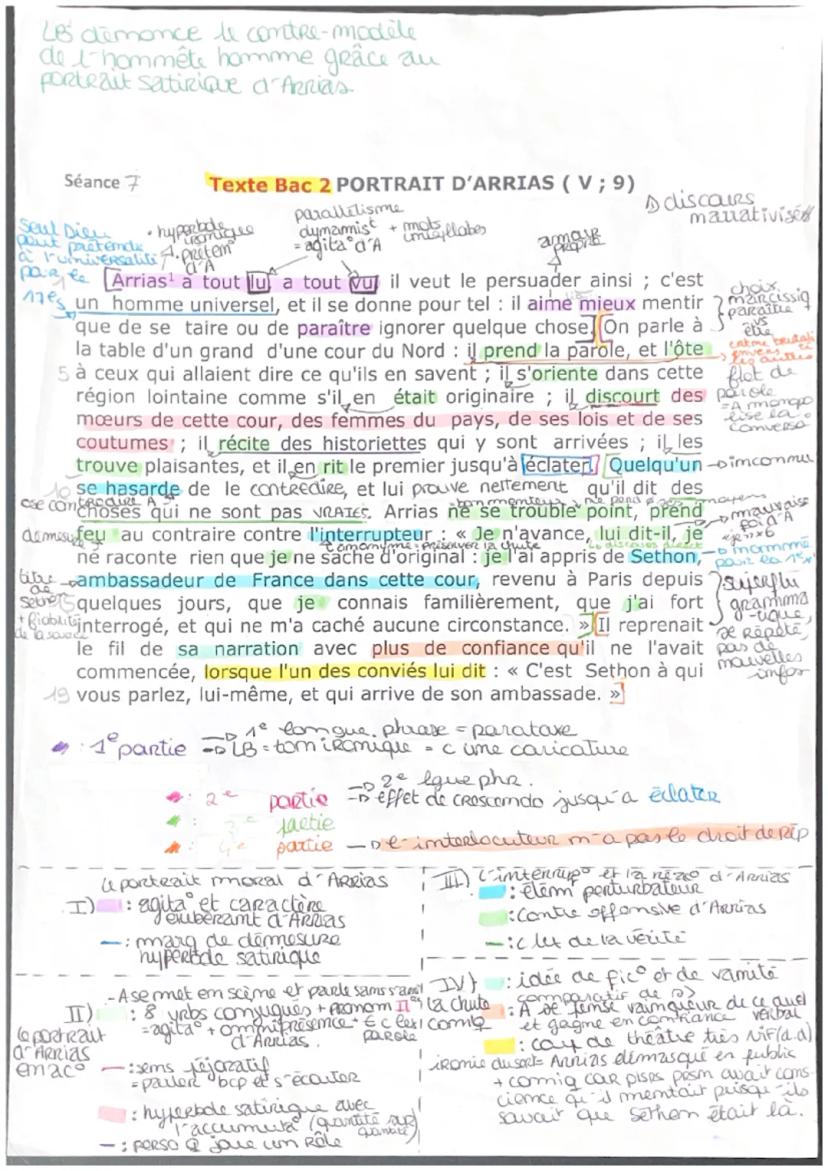 LB démonce le contre-modèle
de l'honnête homme grâce au
portrait satirique d'Arrias
Séance 7 Texte Bac 2 PORTRAIT D'ARRIAS ( V ; 9)
discours
narrativisés
parallélisme
dynamist + mots
= agita° d'A
hyperbole
ironique
amour
propre
seul Dieu
peut prétendre
à l'universalité
par le
17es
Arrias¹ a tout lu, a tout vu, il veut le persuader ainsi ; c'est
un homme universel, et il se donne pour tel : il aime mieux mentir
que de se taire ou de paraître ignorer quelque chose. On parle à
la table d'un grand d'une cour du Nord : il prend la parole, et l'ôte
5 à ceux qui allaient dire ce qu'ils en savent ; il s'oriente dans cette
région lointaine comme s'il en était originaire ; il discourt des
mœurs de cette cour, des femmes du pays, de ses lois et de ses
coutumes ; il récite des historiettes qui y sont arrivées ; il les
trouve plaisantes, et il en rit le premier jusqu'à éclater. Quelqu'un
10 se hasarde de le contredire, et lui prouve nettement qu'il dit des
choses qui ne sont pas VRAIES. Arrias ne se trouble point, prend
feu au contraire contre l'interrupteur : « Je n'avance, lui dit-il, je
ne raconte rien que je ne sache d'original : je l'ai appris de Sethon,
ambassadeur de France dans cette cour, revenu à Paris depuis
15 quelques jours, que je connais familièrement, que j'ai fort
interrogé, et qui ne m'a caché aucune circonstance. » Il reprenait
le fil de sa narration avec plus de confiance qu'il ne l'avait
commencée, lorsque l'un des conviés lui dit : « C'est Sethon à qui
19 vous parlez, lui-même, et qui arrive de son ambassade. »
choix
narcissiq
paraître
vs
être
flot de
parole
= A monopo
lise la
conversa°
inconnu
mauvaise
foi d'A
nommé
pour la 1re x
superflu
gramma
-tique,
se répète,
pas de
nouvelles
infos
démesure
titre
de
Sethon
+ fiabilité
de la source
1e partie → 1e longue phrase = parataxe
→ LB = ton ironique = c une caricature
2e partie → 2e lgue phr.
→ effet de crescendo jusqu'a éclater
3e partie
4e partie → l'interlocuteur n'a pas le droit de rép
le portrait moral d'Arrias
I) : agita° et caractère
exubérant d'Arrias
: marq de démesure
hyperbole satirique
II) le portrait d'Arrias en ac°
- A se met en scène et parle sans s'arrêt
: 8 vrbs conjugués + pronom Il
= agita° + omniprésence
d'Arrias.
: sens péjoratif
= parler bcp et s'écouter
: hyperbole satirique avec
l'accumula° (quantité sur
: perso q joue un rôle
III) L'interrup° et la réac° d'Arrias
: élém perturbateur
: contre offensive d'Arrias
: c let de la vérité
IV) la chute comiq
: idée de fic° et de vanité
comparatif de
: A se pense vainqueur de ce duel verbal
et gagne en confiance
: coup de théâtre très vif (d.d)
ironie du sort = Arrias démasqué en public
+ comiq car plsrs prsm avait cons
cience qu'il mentait puisqu'ils
savait que Sethon était là.